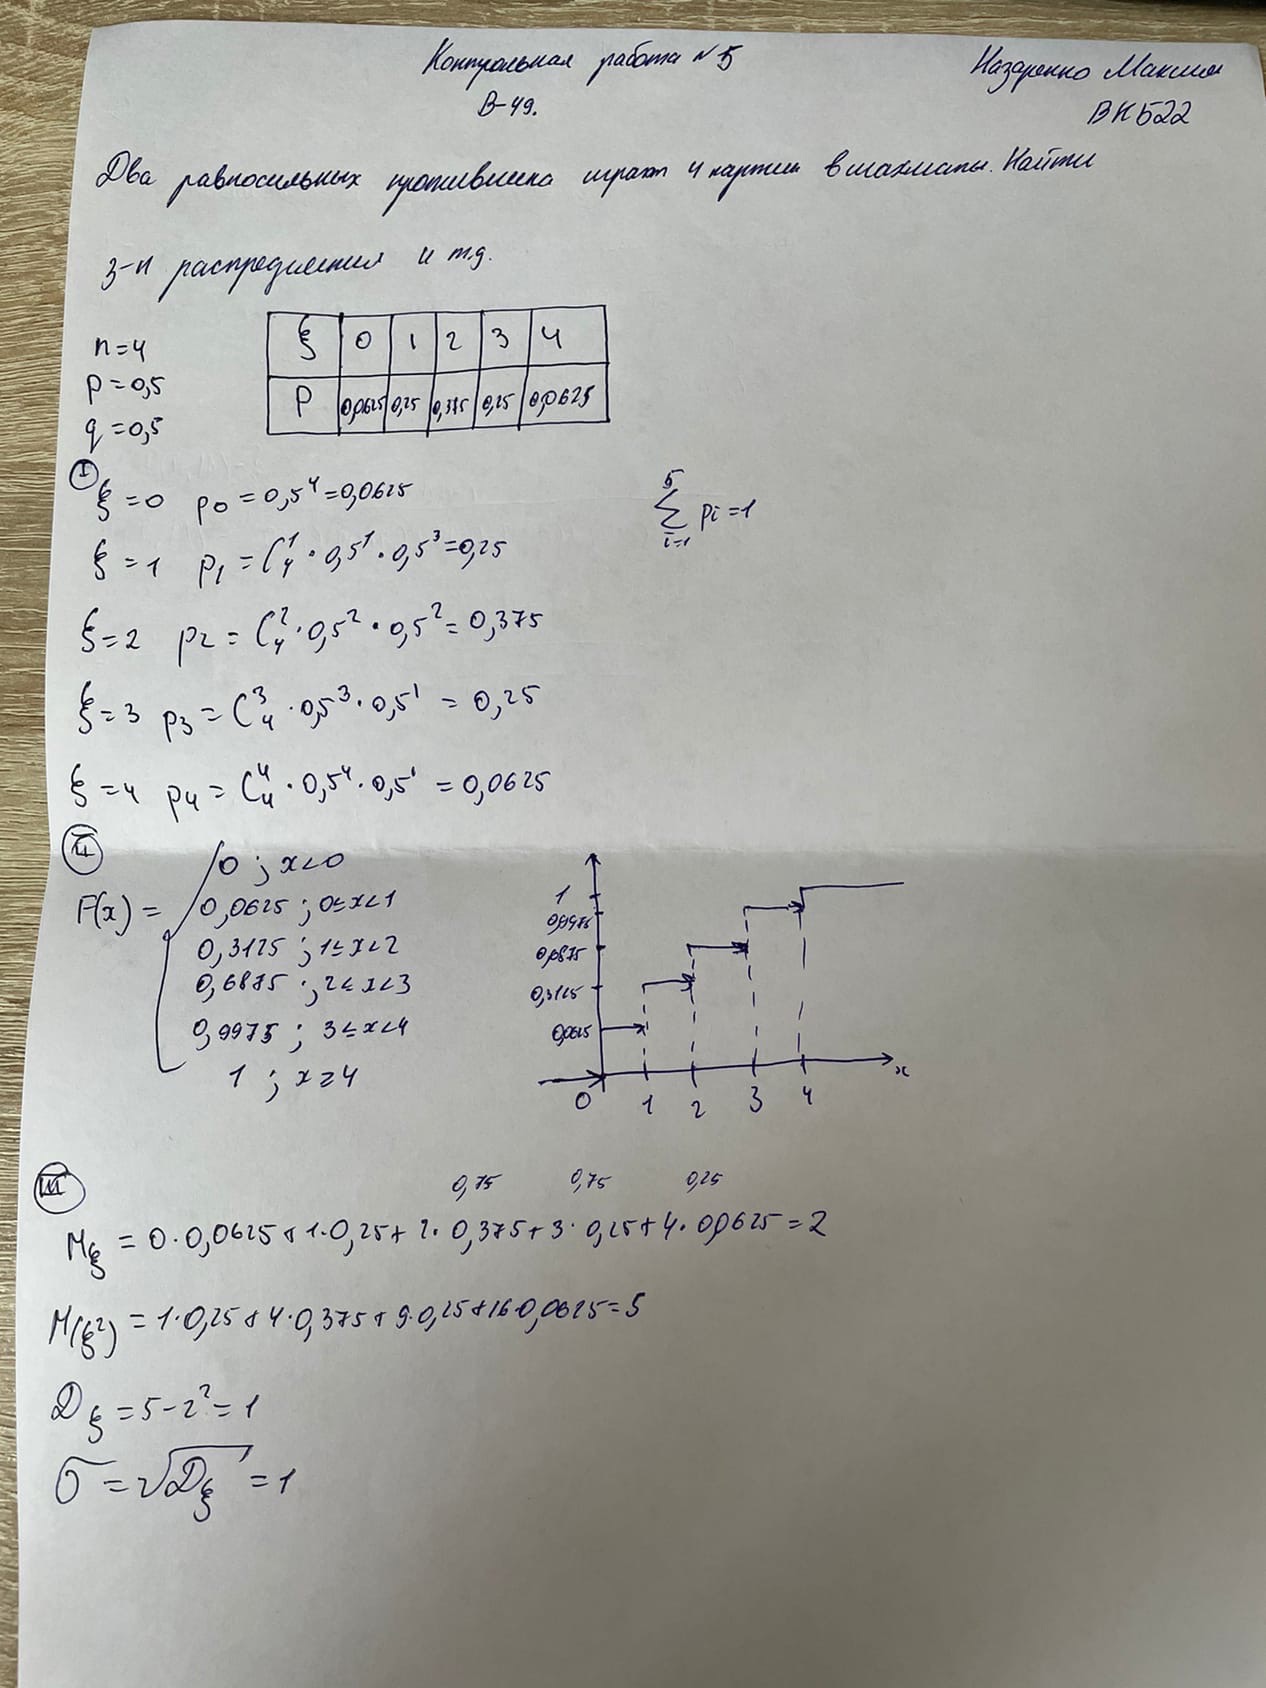 Контрольная работа №5
Назаренко Максим
В-49.
ВКБ22
Два равносильных противника играют 4 партии в шахматы. Найти
з-н распределения и т.д.
n=4
p=0,5
q=0,5
ξ 0 1 2 3 4
P 0,0625 0,25 0,375 0,25 0,0625
I
ξ=0 p0 = 0,5⁴=0,0625
∑ᵢ₌₁⁵ pi=1
ξ=1 p1 = C₄¹·0,5¹·0,5³=0,25
ξ=2 p2 = C₄²·0,5²·0,5²=0,375
ξ=3 p3 = C₄³·0,5³·0,5¹ = 0,25
ξ=4 p4 = C₄⁴·0,5⁴·0,5¹ = 0,0625
II
F(x) =
0 ; x<0
0,0625 ; 0≤x<1
0,3125 ; 1≤x<2
0,6875 ; 2≤x<3
0,9975 ; 3≤x<4
1 ; x≥4
1
0,9975
0,6875
0,3125
0,0625
0 1 2 3 4 x
III
0,75 0,75 0,25
Mξ = 0·0,0625+1·0,25+2·0,375+3·0,25+4·0,0625=2
M(ξ²) = 1·0,25+4·0,375+9·0,25+16·0,0625=5
Dξ = 5-2²=1
σ = √Dξ = 1